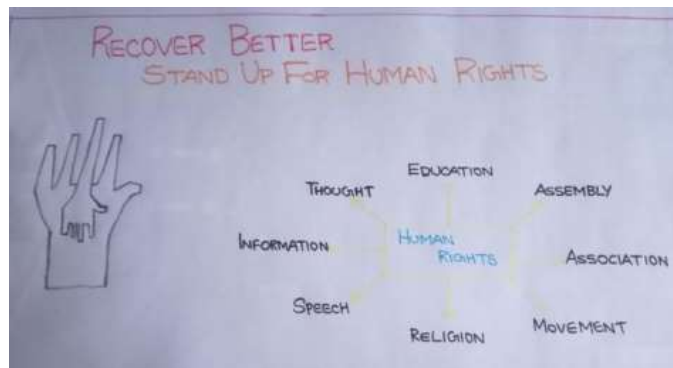 RECOVER BETTER
STAND UP FOR HUMAN RIGHTS
EDUCATION
THOUGHT
ASSEMBLY
INFORMATION
HUMAN
RIGHTS
ASSOCIATION
SPEECH
RELIGION
MOVEMENT